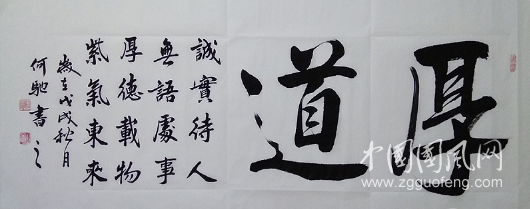 厚道
誠實待人
無語處事
厚德載物
紫氣東來
歲在戊戌秋月
何馳書之
中国國风网
www.zgguofeng.com